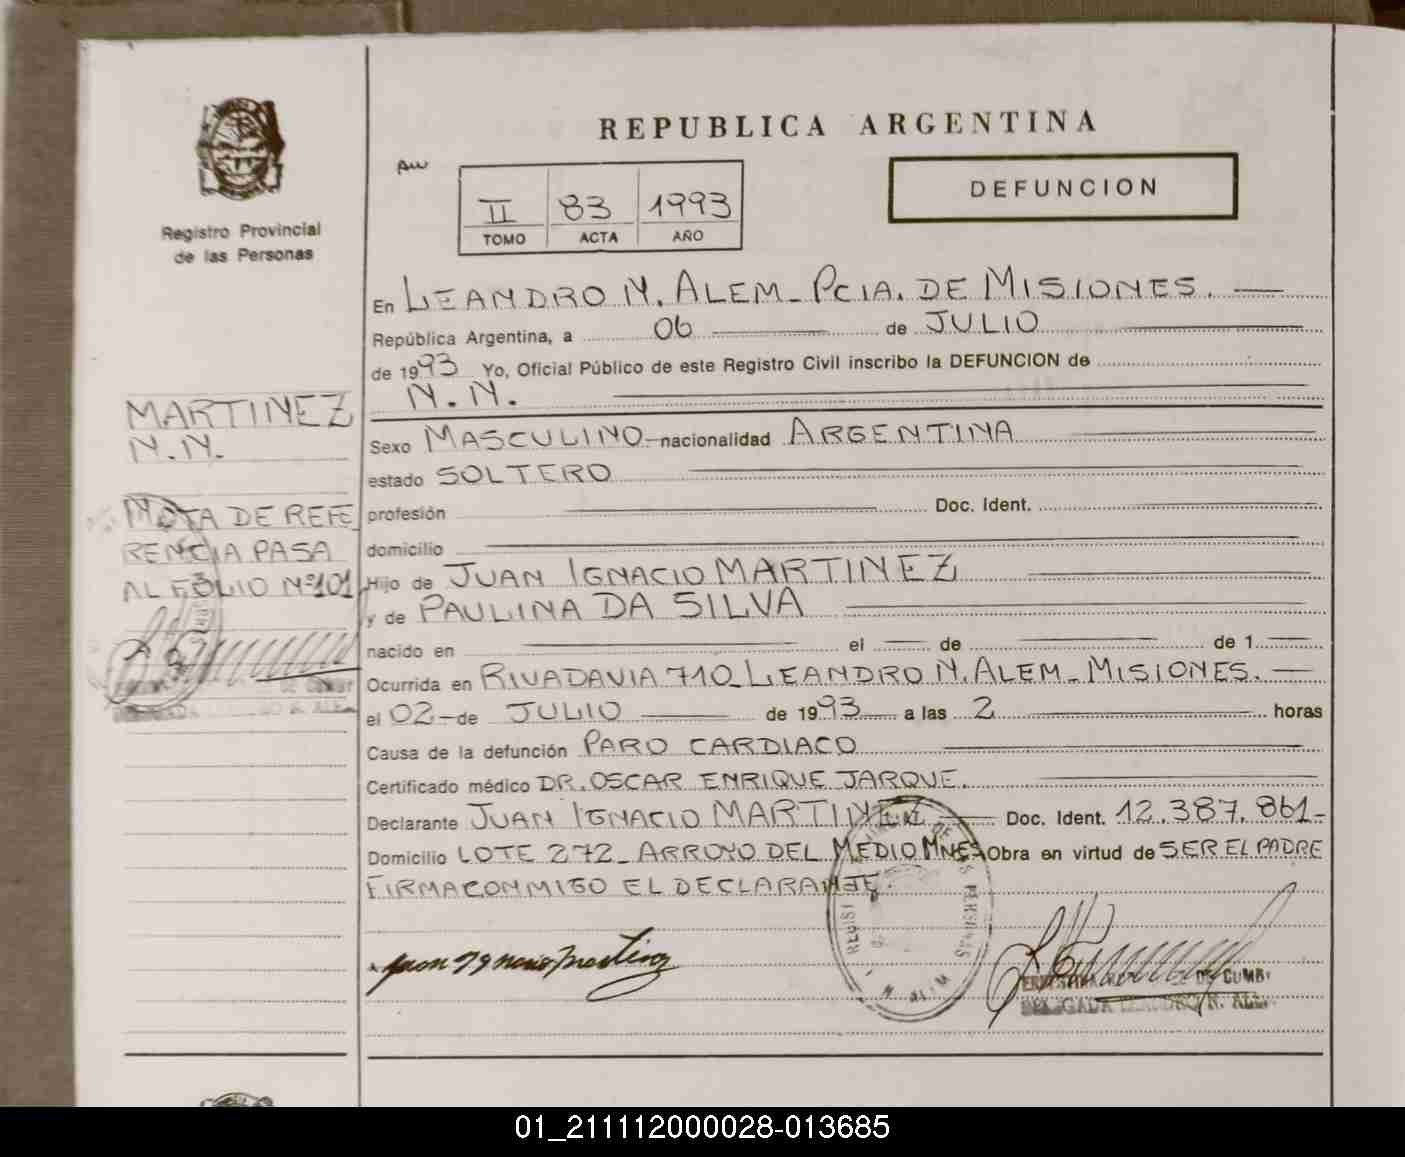 REPUBLICA ARGENTINA
DEFUNCION
II 83 1993
TOMO ACTA AÑO
Registro Provincial
de las Personas
MARTINEZ
N.N.
NOTA DE REFE
RENCIA PASA
AL FOLIO Nº101
En LEANDRO N. ALEM - PCIA. DE MISIONES.
República Argentina, a 06 de JULIO
de 1993 Yo, Oficial Público de este Registro Civil inscribo la DEFUNCION de
N.N.
Sexo MASCULINO nacionalidad ARGENTINA
estado SOLTERO
profesión Doc. Ident.
domicilio
Hijo de JUAN IGNACIO MARTINEZ
y de PAULINA DA SILVA
nacido en el de de 1
Ocurrida en RIVADAVIA 710 - LEANDRO N. ALEM - MISIONES.
el 02 - de JULIO de 1993 a las 2 horas
Causa de la defunción PARO CARDIACO
Certificado médico DR. OSCAR ENRIQUE JARQUE.
Declarante JUAN IGNACIO MARTINEZ Doc. Ident. 12.387.861-
Domicilio LOTE 272 - ARROYO DEL MEDIO MNES Obra en virtud de SER EL PADRE
FIRMA CONMIGO EL DECLARANTE.
Juan Ignacio Martinez
01_211112000028-013685